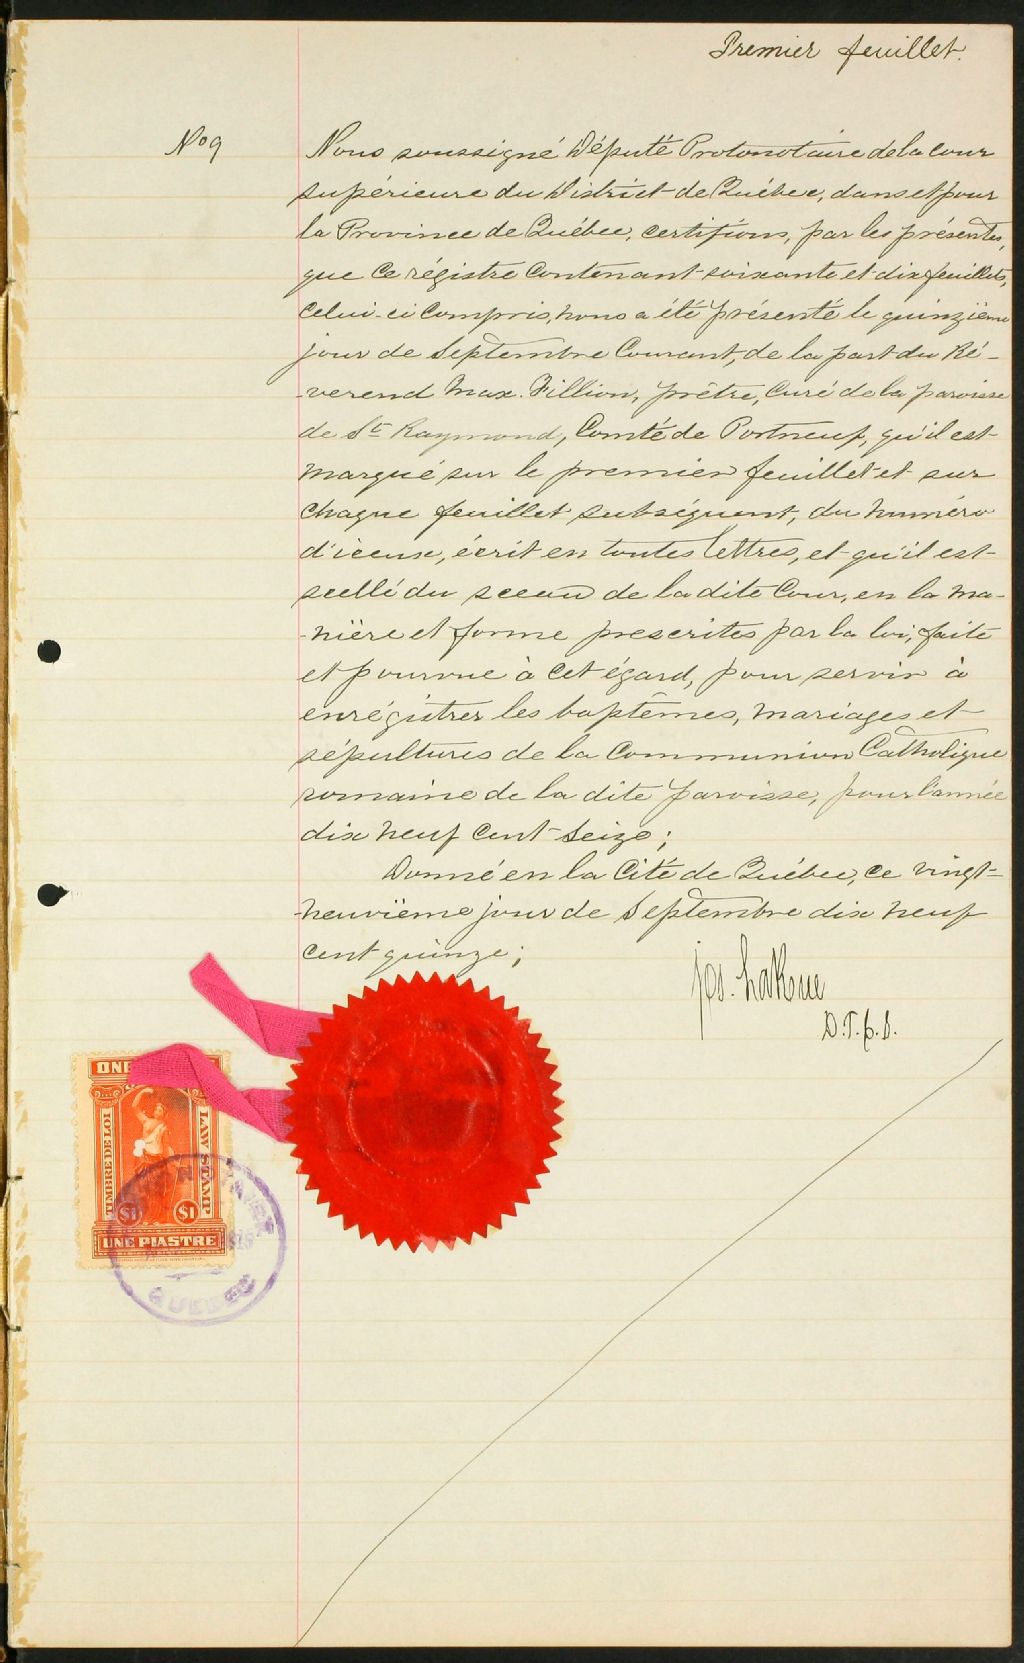 Premier feuillet.
No 9
Nous soussigné Député Protonotaire de la Cour
supérieure du District de Québec, dans et pour
la Province de Québec, certifions, par les présentes,
que ce régistre contenant soixante et dix feuillets,
celui-ci compris, nous a été présenté le quinzième
jour de Septembre Courant, de la part du Ré-
-verend Max. Fillion, prêtre, Curé de la paroisse
de St Raymond, Comté de Portneuf, qu'il est
marqué sur le premier feuillet et sur
chaque feuillet subséquent, du numéro
d'iceux, écrit en toutes lettres, et qu'il est
scellé du sceau de la dite Cour, en la ma-
-nière et forme prescrites par la loi, faite
et pourvue à cet égard, pour servir à
enrégistrer les baptêmes, mariages et
sépultures de la Communion Catholique
romaine de la dite paroisse, pour l'année
dix neuf cent seize;
Donné en la Cité de Québec, ce vingt-
neuvième jour de Septembre dix neuf
cent quinze;
Jos. LaRue
D.P.C.S.
ONE
TIMBRE DE LOI
LAW STAMP
$1 $1
UNE PIASTRE
QUEBEC